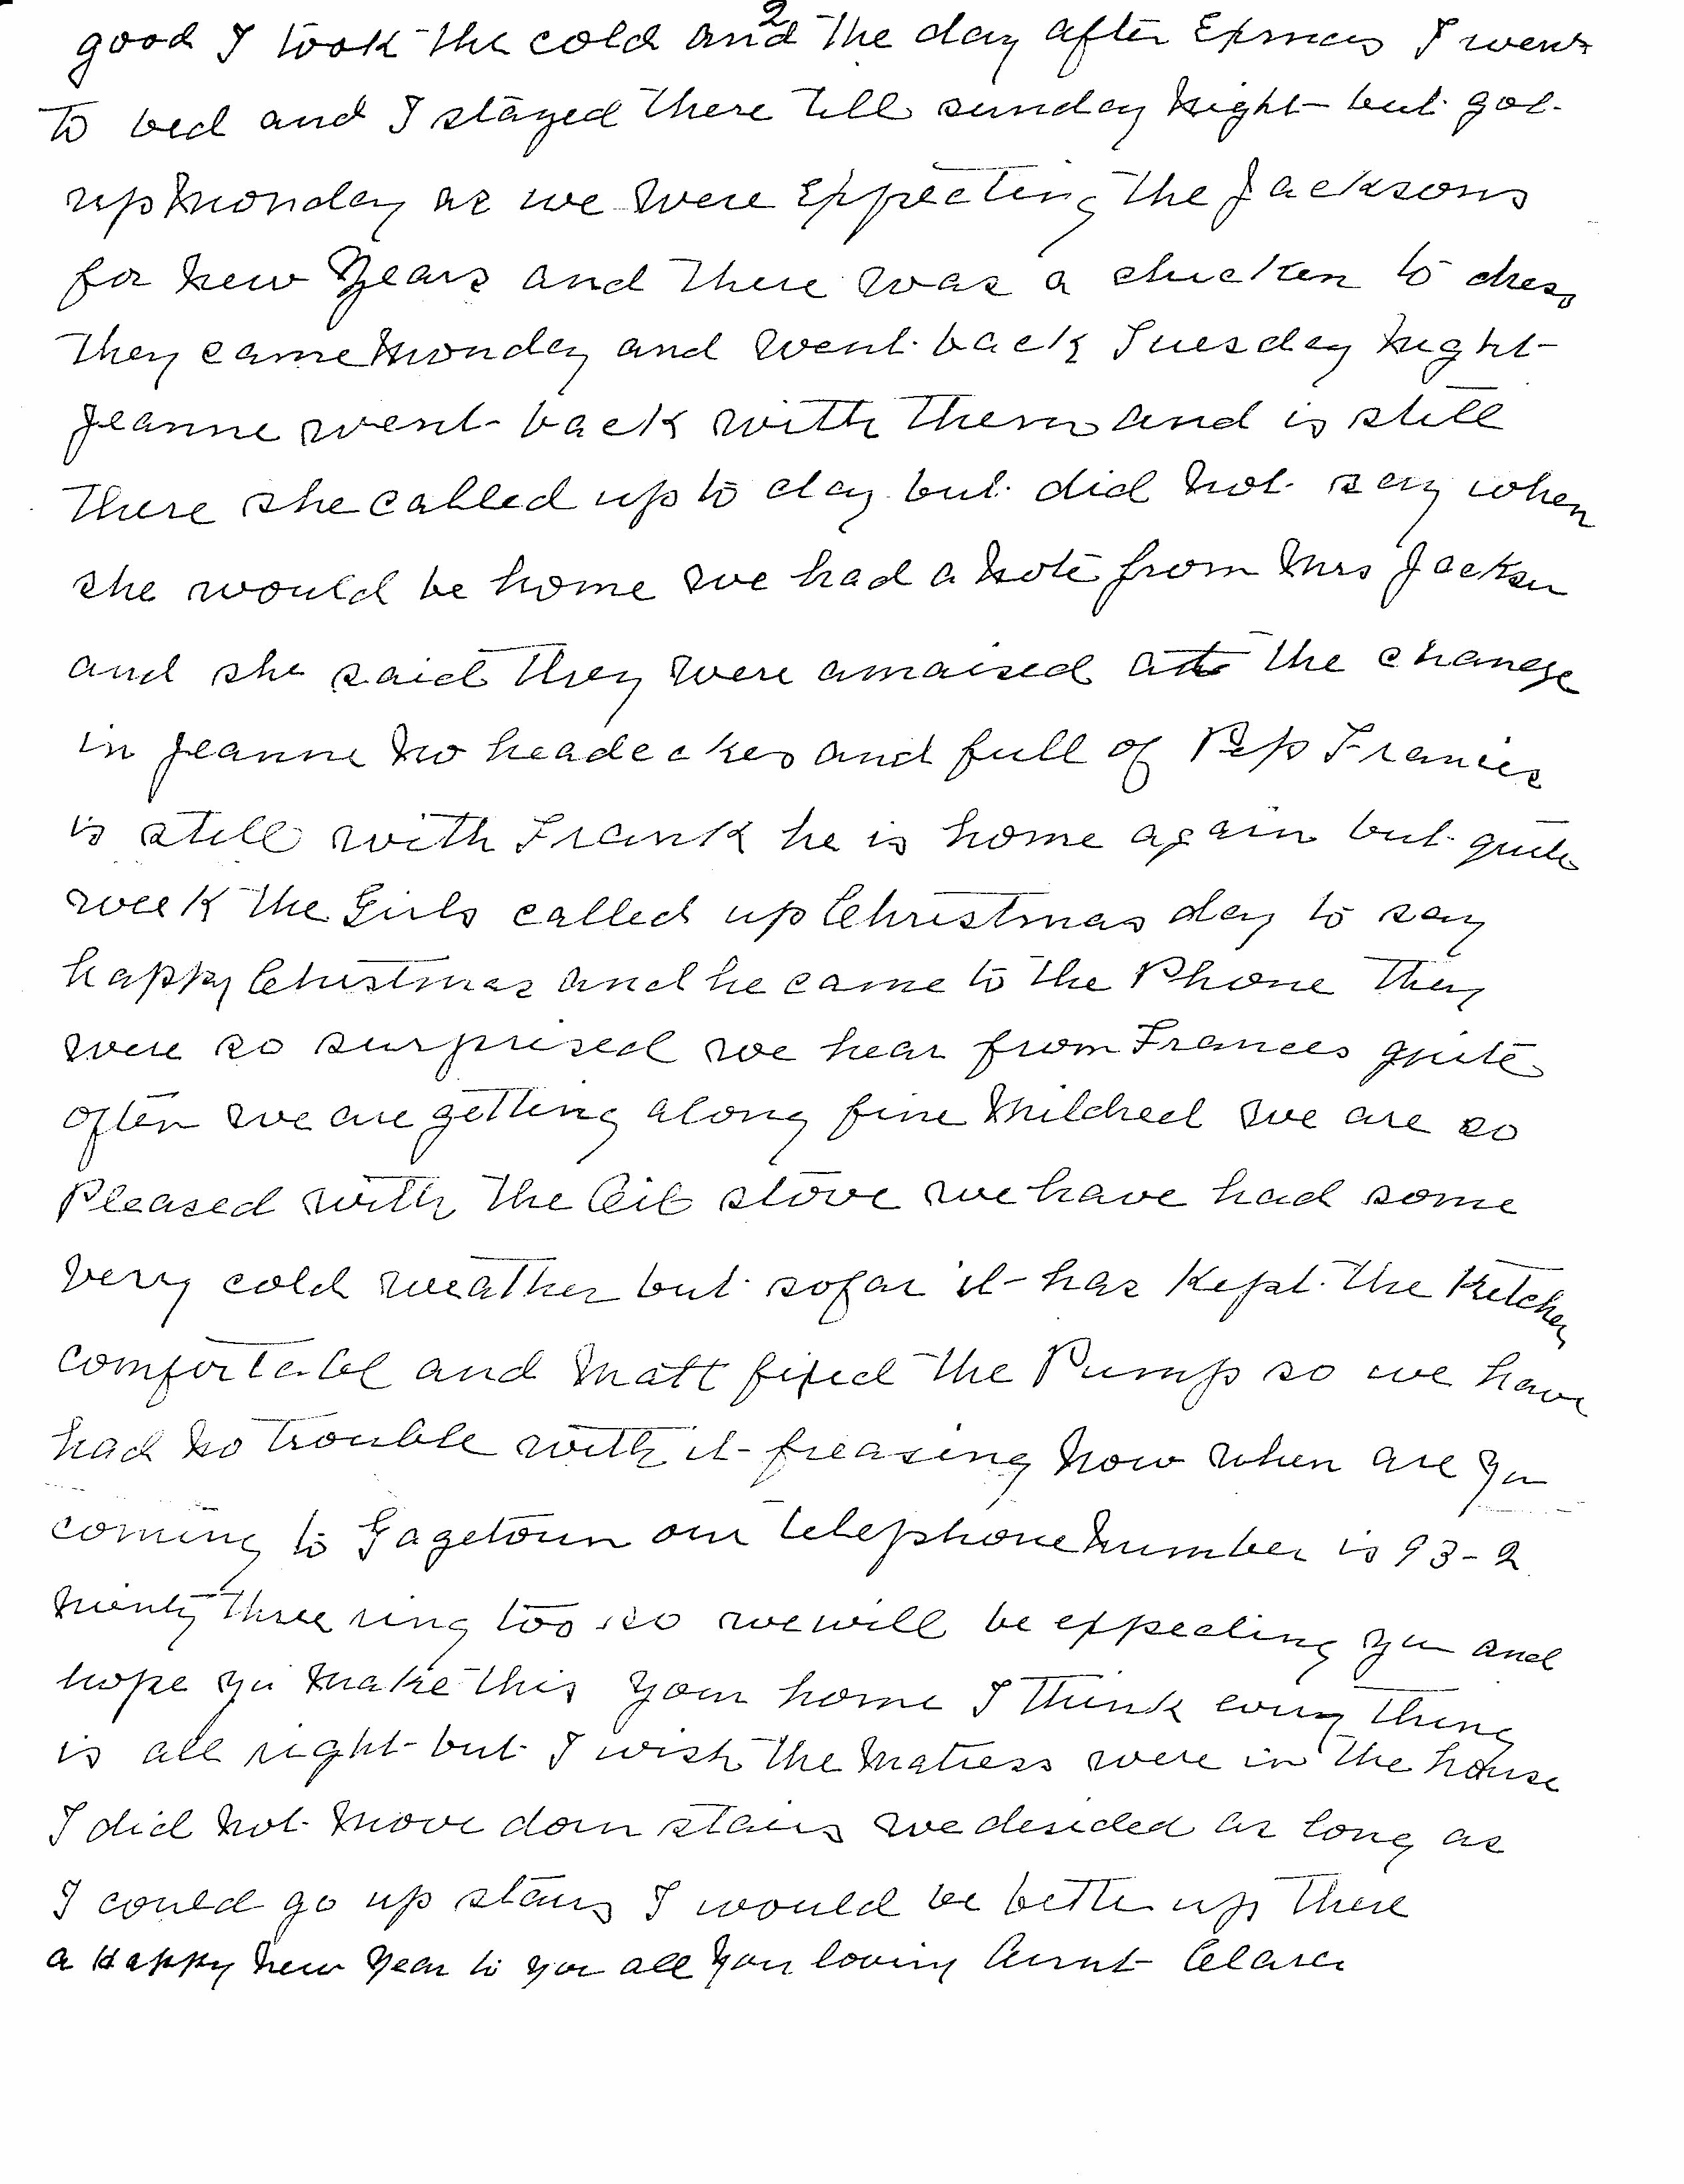 2
good I took the cold and the day after Exmas I went
to bed and I stayed there till sunday night but got
up monday as we were Expecting the Jacksons
for new Years and there was a chicken to dress
they came monday and went back Tuesday night
Jeanne went back with them and is still
there she called up to day but did not say when
she would be home we had a note from Mrs Jackson
and she said they were amaised at the change
in Jeanne no headeckes and full of Pep Frances
is still with Frank he is home again but quite
week the Girls called up Christmas day to say
happy Christmas and he came to the Phone they
were so surprised we hear from Frances quite
often we are getting along fine Mildred we are so
Pleased with the Oil stove we have had some
very cold weather but sofar it has kept the Kitchen
comfortabl and Matt fixed the Pump so we have
had no trouble with it freasing now when are you
coming to Gagetown our telephone number is 93-2
ninty three ring too so we will be expecting you and
hope you make this your home I think every thing
is all right but I wish the matress were in the house
I did not move down stairs we desided as long as
I could go up stairs I would be better up there
a Happy new year to you all your loving Aunt Clara